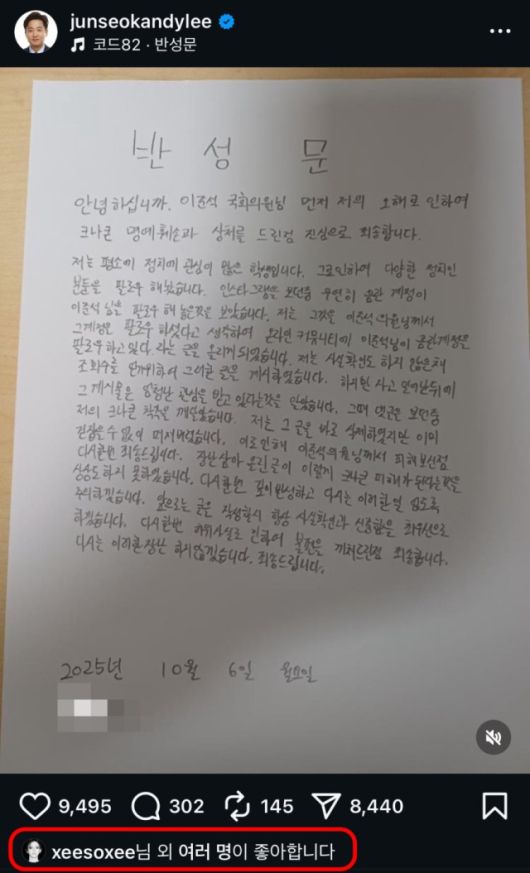 junseokandylee
코드82 · 반성문
반 성 문
안녕하십니까. 이준석 국회의원님 먼저 저의 오해로 인하여
크나큰 명예훼손과 상처를 드린점 진심으로 죄송합니다.
저는 평소에 정치에 관심이 많은 학생입니다. 그로인하여 다양한 정치인
분들을 팔로우 해놨습니다. 인스타그램을 보던중 우연히 음란 계정이
이준석 님을 팔로우 해 놓은것을 보았습니다. 저는 그것을 이준석 의원님께서
그계정을 팔로우 하셨다고 생각하여 온라인 커뮤니티에 이준석님이 음란계정을
팔로우하고 있다. 라는 글을 올리게 되었습니다. 저는 사실확인도 하지 않은채
조회수를 얻기위하여 그러한 글을 게시하였습니다. 하지만 사고 일어난뒤에
그 게시물은 엄청난 관심을 받고 있다는것을 알았습니다. 그때 댓글을 보던중
저의 크나큰 착오를 깨달았습니다. 저는 그 글을 바로 삭제하였지만 이미
걷잡을 수 없이 퍼져버렸습니다. 이로 인해 이준석의원님께서 피해보신점
다시한번 죄송드립니다. 장난삼아 올린글이 이렇게 크나큰 피해가 된다는것을
상상도 하지 못하였습니다. 다시한번 깊이 반성하고 다시는 이러한일 없도록
주의하겠습니다. 앞으로는 글을 작성할시 항상 사실확인과 신중함을 최우선으로
하겠습니다. 다시한번 허위사실로 인하여 불편을 끼쳐드린점 죄송합니다.
다시는 이러한 장난 하지않겠습니다. 죄송드립니다.
2025년 10월 6일 월요일
9,495 302 145 8,440
xeesoxee님 외 여러 명이 좋아합니다